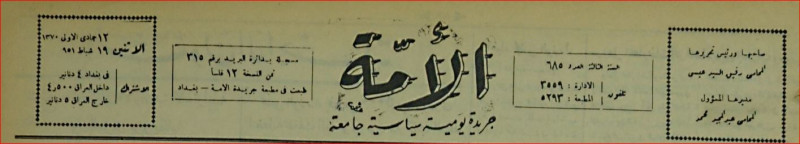 صاحبها ورئيس تحريرها
المحامي رفيق السيد عيسى
مديرها المسؤول
المحامي عبد المجيد محمد
السنة الثالثة العدد ٦٨٥
تلفون
الادارة : ٣٥٥٩
المطبعة : ٥٢٩٣
الأمّة
جريدة يومية سياسية جامعة
مسجلة بدائرة البريد برقم ٣١٥
ثمن النسخة ١٢ فلساً
طبعت في مطبعة جريدة الامة - بغداد
١٢ جمادي الاولى ١٣٧٠
الاثنين
١٩ شباط ٩٥١
الاشتراك
في بغداد ٤ دنانير
داخل العراق ٤٫٥٠٠
خارج العراق ٥ دنانير